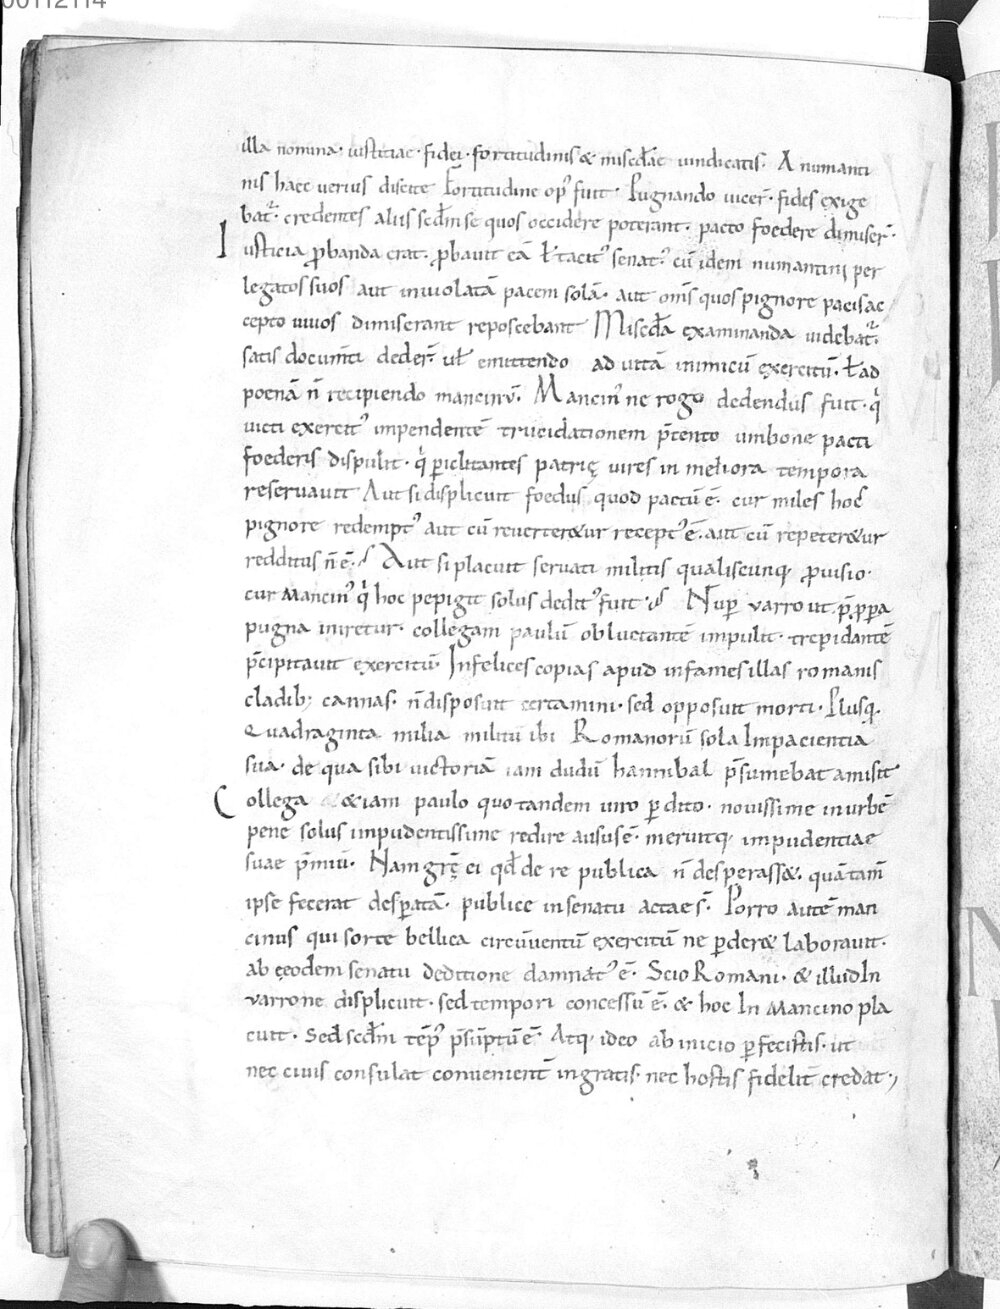 00112114
illa nomina· iustitiae· fidei· fortitudinis & misc̄dāe uindicatis· A numanti
nis haec uerius discite Fortitudine opꝰ fuit· Pugnando uicer̄· fides exige
bat᷑· credentes aliis scd̄m se quos occidere poterant· pacto foedere dimiser̄·
Iusticia ꝓbanda erat· ꝓbauit eā ł tacitꝰ senatꝰ· cū idem numantini per
legatos suos aut inuiolatā pacem solā· aut om̄s quos pignore pacis ac
cepto uiuos dimiserant reposcebant Misc̄da examinanda uidebat᷑·
satis documti dedeȓ uł emittendo ad uitā inimicū exercitū· ł ad
poenā n̄ recipiendo mancinū· Mancinꝰ ne rogo dedendus fuit· q̇
uicti exercitꝰ impendentē trucidationem p̄tento umbone pacti
foederis dispulit· q̇ ꝑiclitantes patrię uires in meliora tempora
reseruauit Aut si displicuit foedus quod pactū ē· cur miles hoc
pignore redemptꝰ aut cū reuerter&ur receptꝰ ē· aut cū repeter&ur
redditus n̄ ē· Aut si placuit seruati militis qualiscunq· ꝓuisio·
cur Mancinꝰ q̇ hoc pepigit solus deditꝰ fuit· Nuꝑ uarro ut p̄ꝓꝑa
pugna iniretur· collegam paulū obluctantē impulit· trepidantē
p̄cipitauit exercitū· Infelices copias apud infames illas romanis
cladib; cannas· n̄ disposuit certamini· sed opposuit morti· Plusq·
Quadraginta milia militū ibi Romanorū sola Impacientia
sua· de qua sibi uictoriā iam dudū hannibal p̄sumebat amisit
Collega & &iam paulo quo tandem uiro ꝑdito· nouissime in urbē
pene solus impudentissime redire aususē· meruitq· impudentiae
suae p̄miū· Nam grę̄ ei qd̄ de re publica n̄ desperass&· quā tam̄
ipse fecerat desꝑatā· publice in senatu actae s̄· Porro autē man
cinus qui sorte bellica circūuentū exercitū ne ꝑder& laborauit·
ab ęeodem senatu deditione damnatꝰ ē· Scio Romani· & illud In
uarrone displicuit· sed tempori concessū ē· & hoc In Mancino pla
cuit· Sed scd̄m tēpꝰ p̄sūptū ē· Atq· ideo ab inicio ꝑfecistis· ut
nec ciuis consulat conuenient̄ ingratis· nec hostis fidelit̄ credat·,